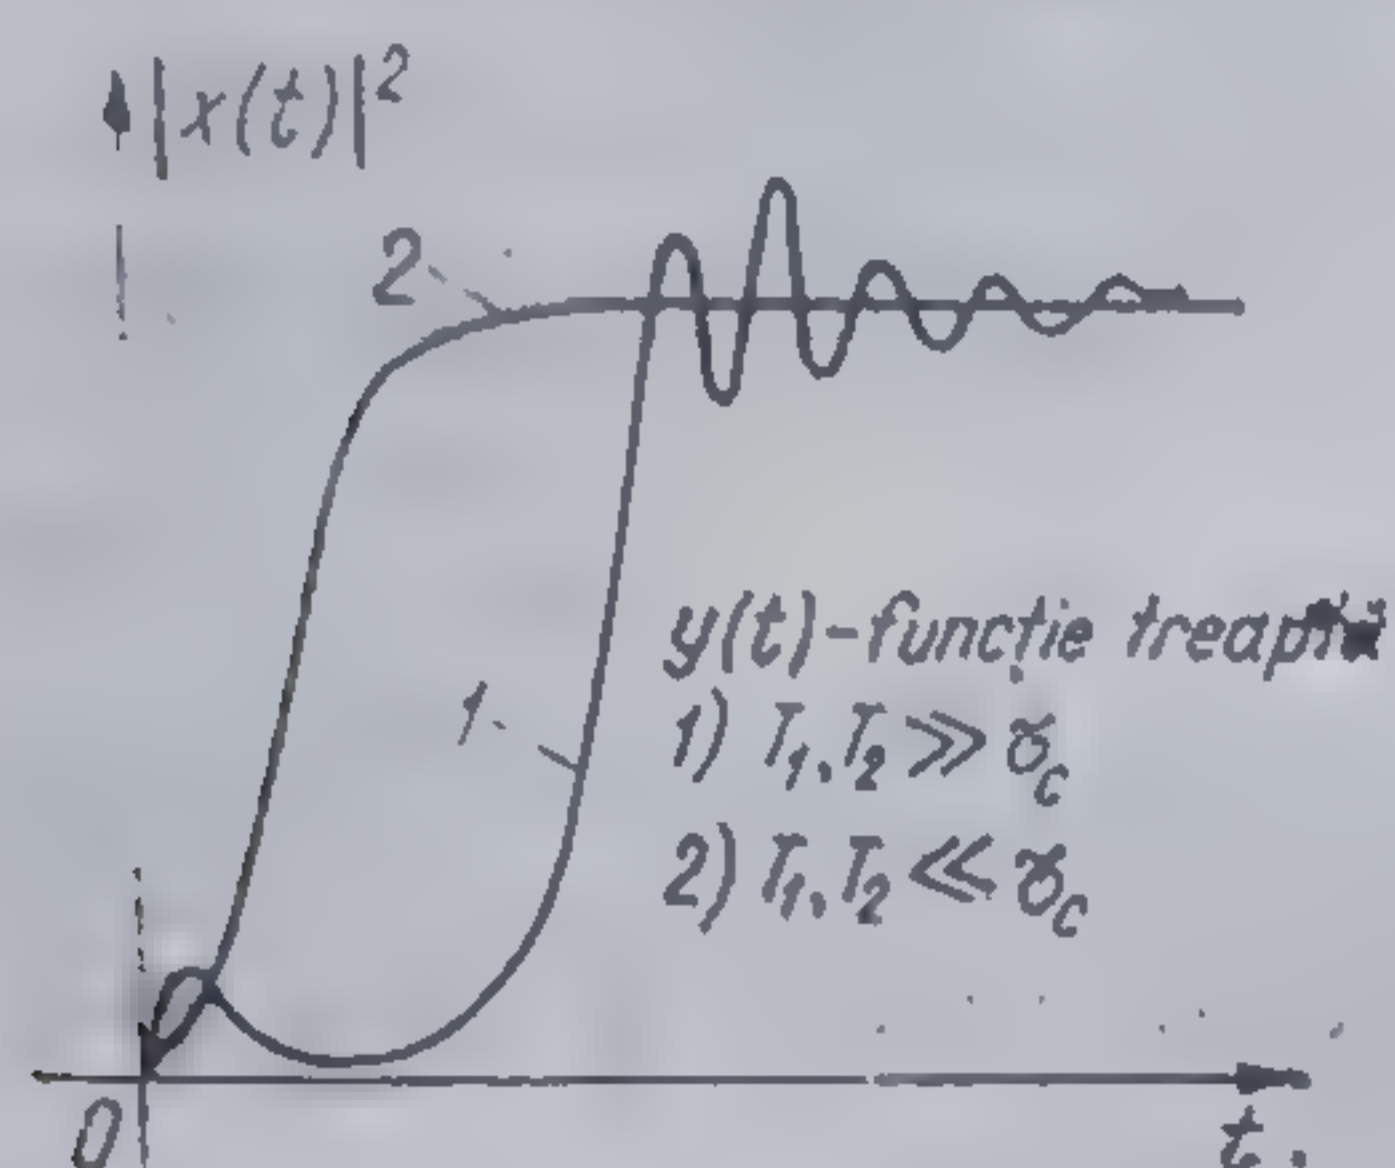 |x(t)|²
2
y(t)-funcție treaptă
1
1) T₁,T₂ ≫ ℽ_c
2) T₁,T₂ ≪ ℽ_c
0
t